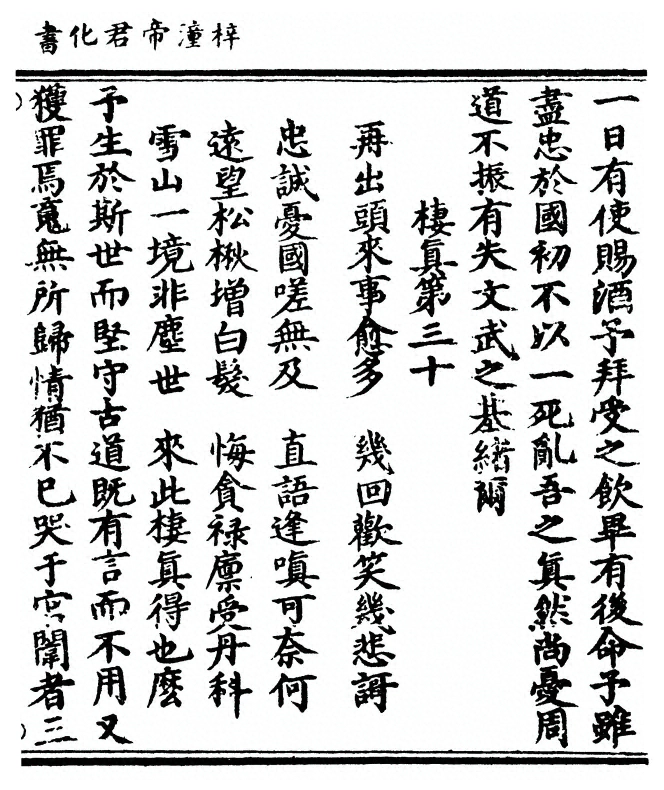 梓潼帝君化書
一日有使賜酒予拜受之飲畢有後命予雖
盡忠於國初不以一死亂吾之眞然尚憂周
道不振有失文武之基緒爾
棲眞第三十
再出頭來事愈多 幾回歡笑幾悲謌
忠誠憂國嗟無及 直語逢嗔可奈何
遠望松楸增白髮 悔貪祿廩受丹科
雪山一境非塵世 來此棲眞得也麼
予生於斯世而堅守古道既有言而不用又
獲罪焉䰟無所歸情猶不已哭于宮闈者三